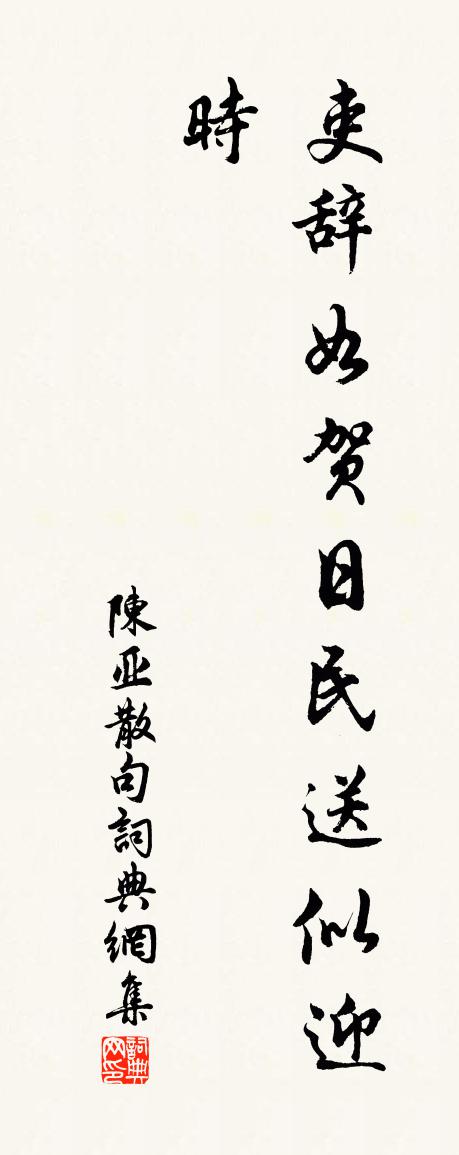 吏辞如贺日民送似迎
時
陳亚散句詞典網集
詞典
网印